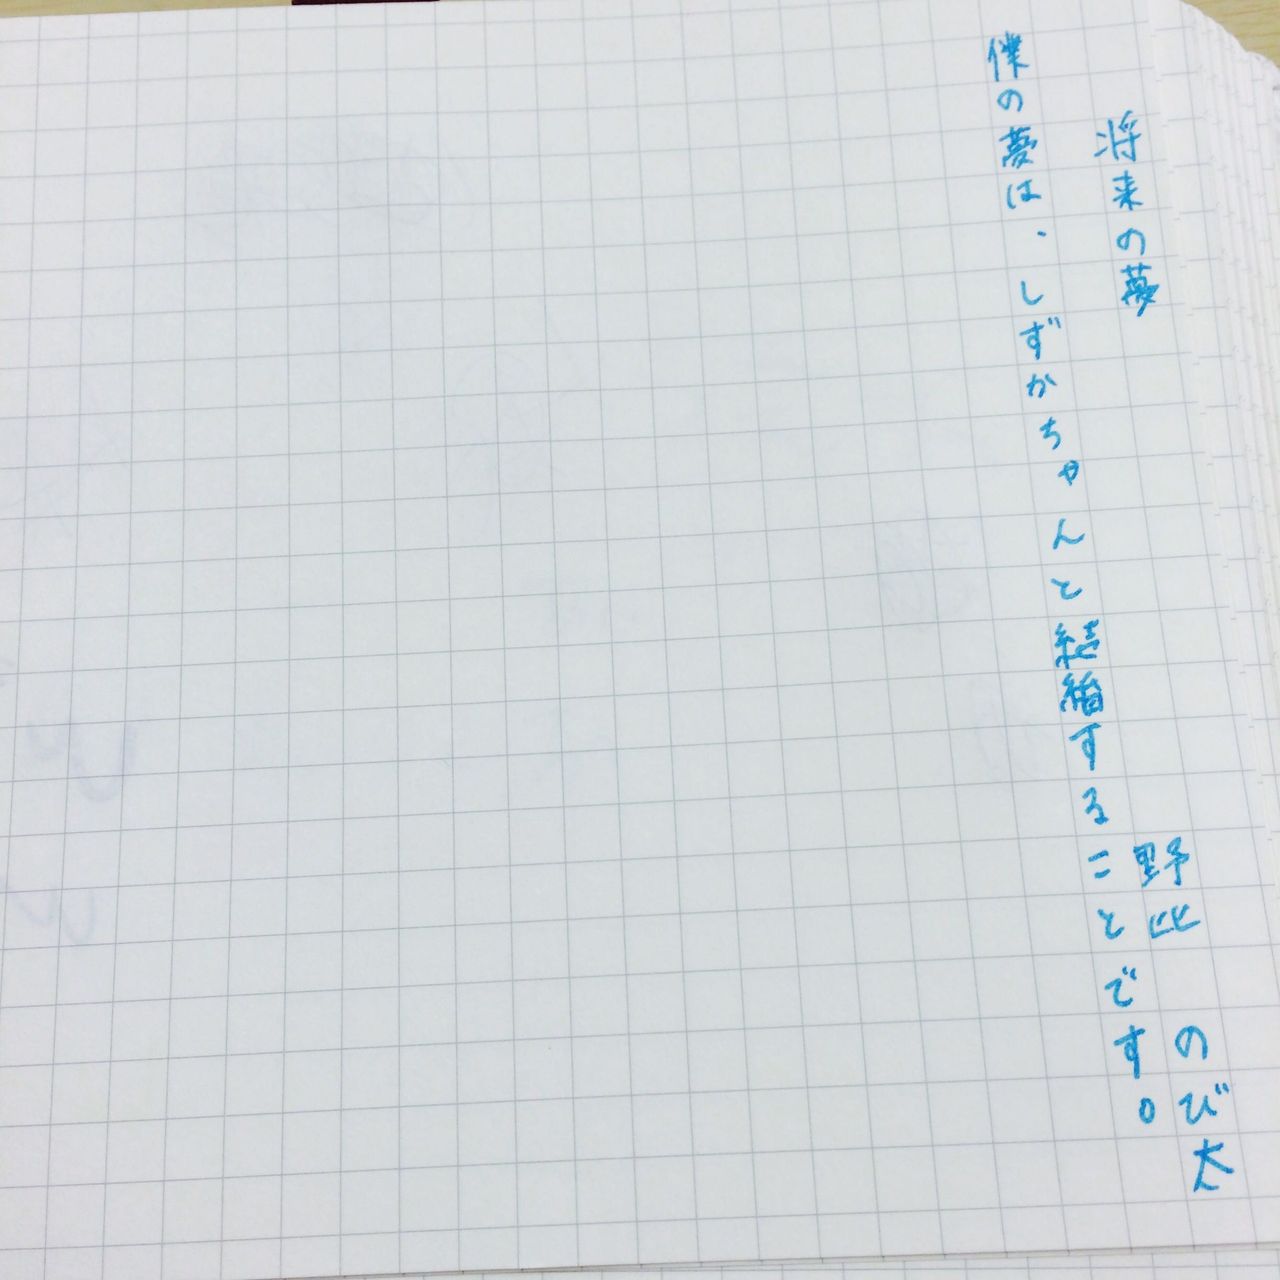 将来の夢
野比 のび太
僕の夢は、しずかちゃんと結婚することです。